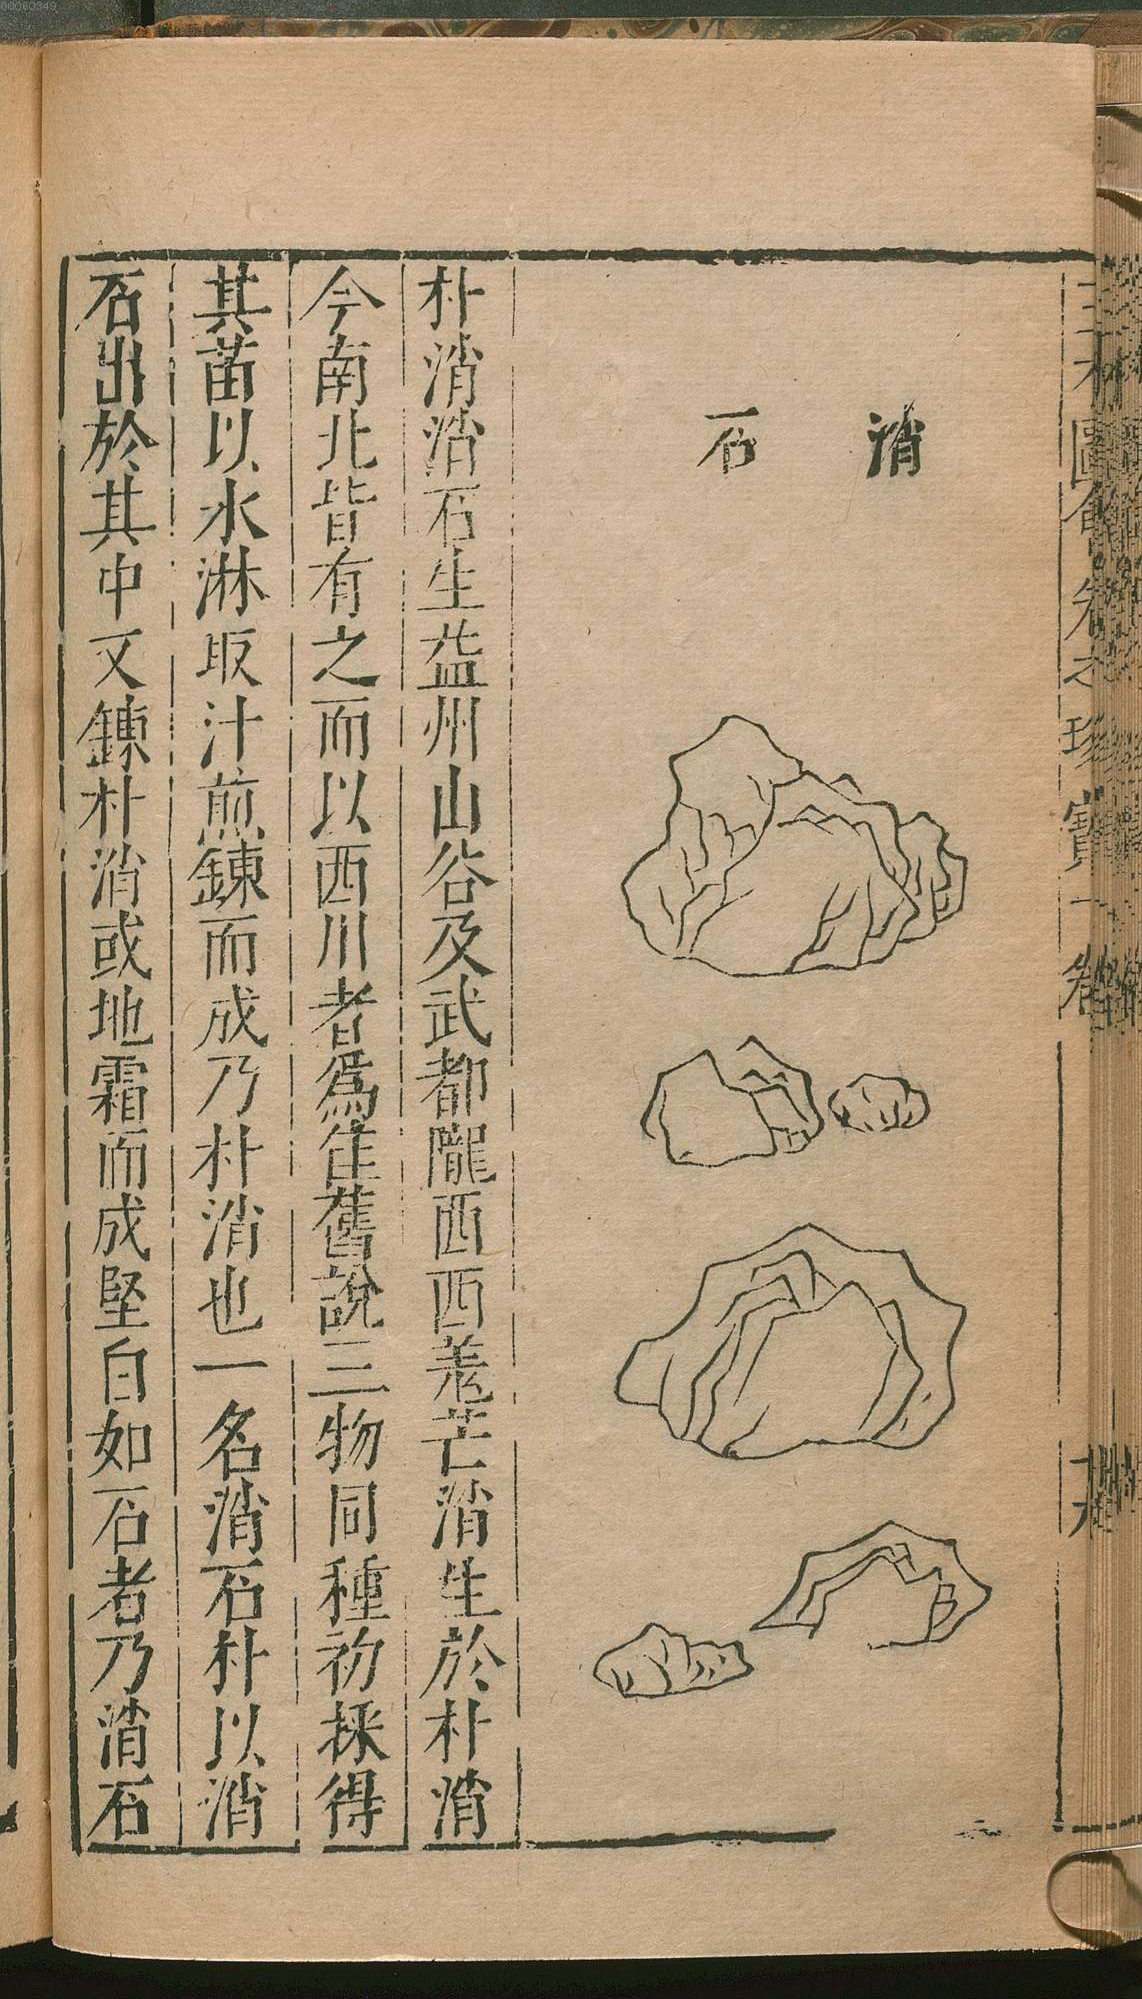 00060349
三才圖會卷之珍寶一卷
消石
朴消消石生益州山谷及武都隴西西羗芒消生於朴消
今南北皆有之而以西川者爲佳舊說三物同種初採得
其苗以水淋取汁煎鍊而成乃朴消也一名消石朴以消
石出於其中又鍊朴消或地霜而成堅白如石者乃消石